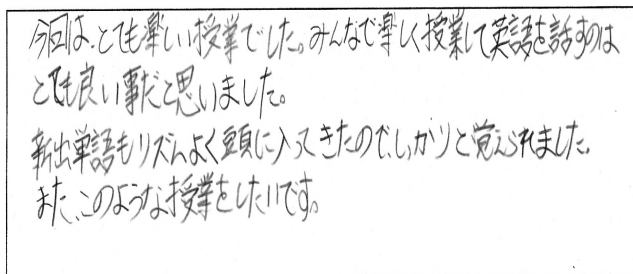 今回は、とても楽しい授業でした。みんなで楽しく授業して英語を話すのは
とても良い事だと思いました。
新出単語もリズムよく頭に入ってきたので、しっかりと覚えられました。
また、このような授業をしたいです。